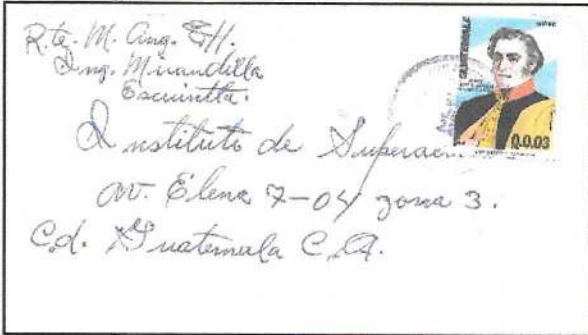 R.te. M. Ang. G.H.
Ing. Mirandilla
Escuintla.
Instituto de
Av. Elena 7-04 zona 3.
Cd. Guatemala C.A.
GUATEMALA
Q.0.03